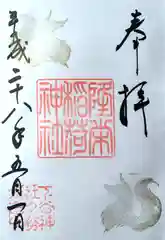 奉拝
稲荷
神社
平成二十八年五月一日